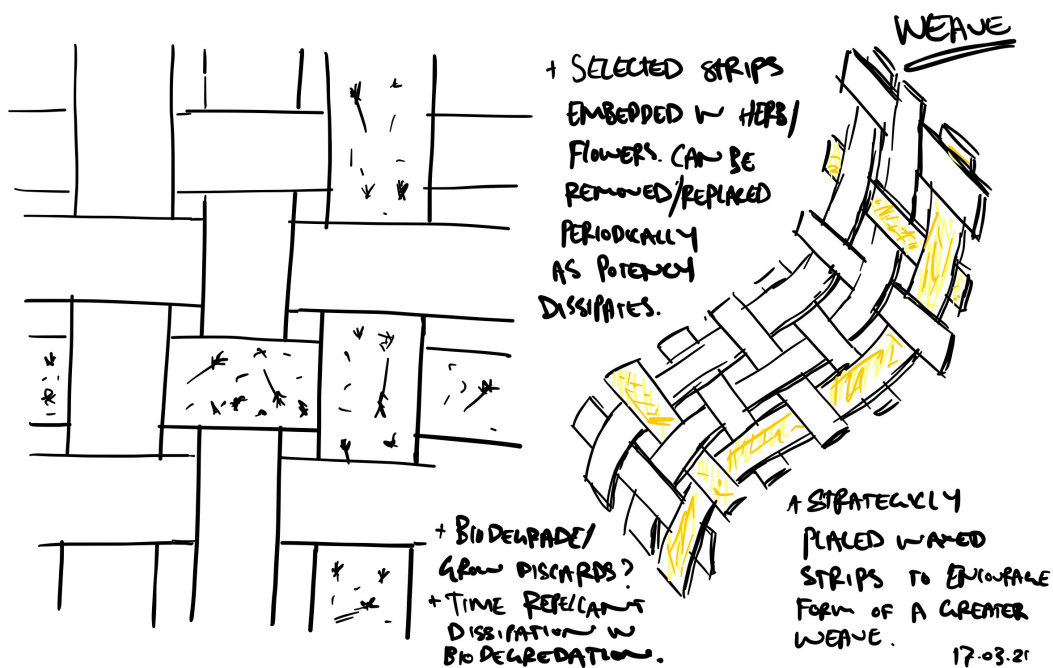 WEAVE
+ SELECTED STRIPS
EMBEDDED W HERB/
FLOWERS. CAN BE
REMOVED/REPLACED
PERIODICALLY
AS POTENCY
DISSIPATES.
+ BIODEGRADE/
GROW DISCARDS?
+ TIME REPELLANT
DISSIPATION W
BIODEGREDATION.
+ STRATEGICLY
PLACED WAXED
STRIPS TO ENCOURAGE
FORM OF A GREATER
WEAVE.
17.03.21